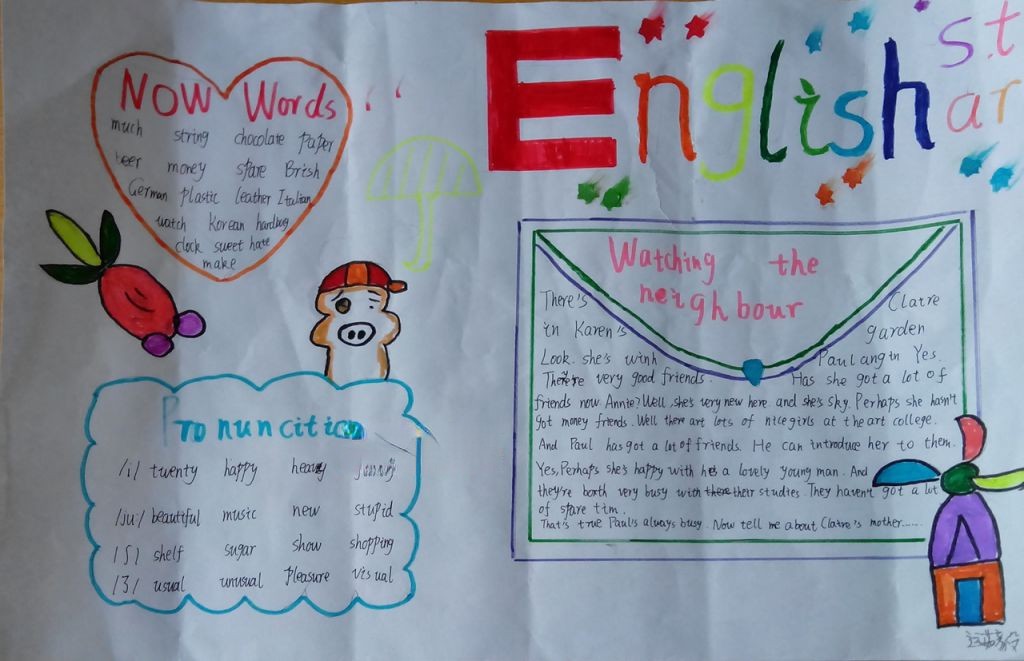 English
st
ar
NOW Words
much string chocolate paper
beer money spare Brish
German plastic leather Italian
watch Korean handbag
clock sweet hate
make
Watching the
neighbour
There's Claire
in Karen's garden
Look. she's winh Paul angin Yes.
There're very good friends. Has she got a lot of
friends now Annie? Well she's very new here and she's sky. Perhaps she hasn't
got money friends. Well there art lots of nice girls at the art college.
And Paul has got a lot of friends. He can introduce her to them.
Yes, Perhaps she's happy with a lovely young man. And
they're borth very busy with their studies. They haven't got a lot
of spare tim.
That's true Paul's always busy. Now tell me about Claire's mother......
Pronuncition
/i/ twenty happy heavy
/ju:/ beautiful music new stupid
/ʃ/ shelf sugar show shopping
/ʒ/ usual unusual pleasure visual